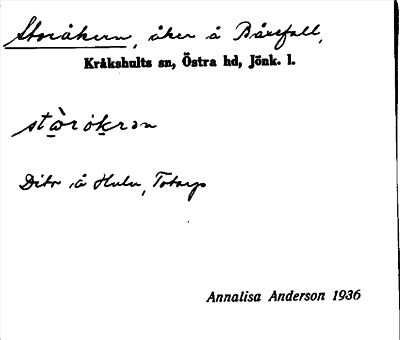 Storåkern, åker å Bårefall,
Kråkshults sn, Östra hd, Jönk. l.
stò̠rók̠rən
Dito å Hulu, Totarp
Annalisa Anderson 1936